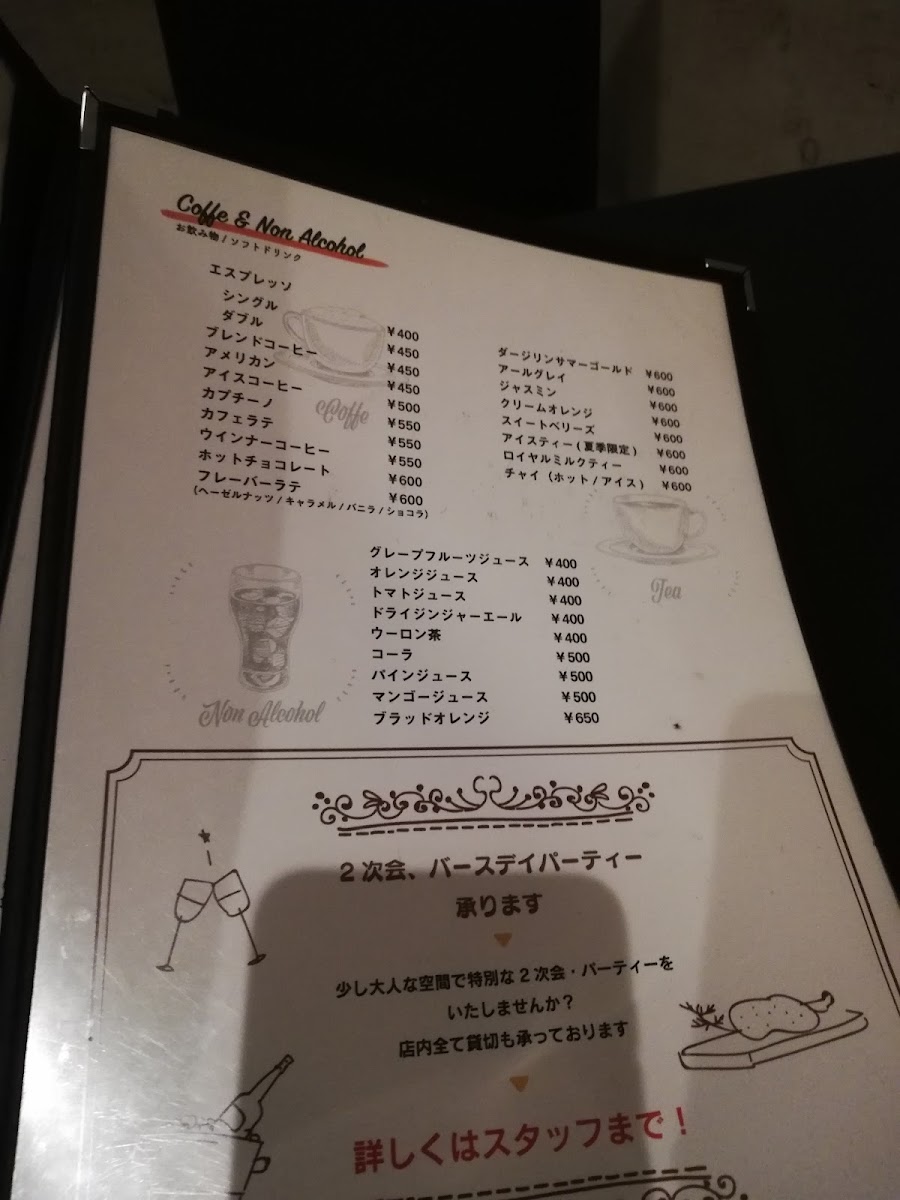 Coffe & Non Alcohol
お飲み物 / ソフトドリンク
エスプレッソ
シングル ¥400
ダブル ¥450
ブレンドコーヒー ¥450
アメリカン ¥450
アイスコーヒー ¥500
カプチーノ ¥550
カフェラテ ¥550
ウインナーコーヒー ¥550
ホットチョコレート ¥600
フレーバーラテ ¥600
(ヘーゼルナッツ / キャラメル / バニラ / ショコラ)
Coffe
ダージリンサマーゴールド ¥600
アールグレイ ¥600
ジャスミン ¥600
クリームオレンジ ¥600
スイートベリーズ ¥600
アイスティー(夏季限定) ¥600
ロイヤルミルクティー ¥600
チャイ(ホット / アイス) ¥600
Tea
グレープフルーツジュース ¥400
オレンジジュース ¥400
トマトジュース ¥400
ドライジンジャーエール ¥400
ウーロン茶 ¥400
コーラ ¥500
パインジュース ¥500
マンゴージュース ¥500
ブラッドオレンジ ¥650
Non Alcohol
2次会、バースデイパーティー
承ります
少し大人な空間で特別な2次会・パーティーを
いたしませんか?
店内全て貸切も承っております
詳しくはスタッフまで!